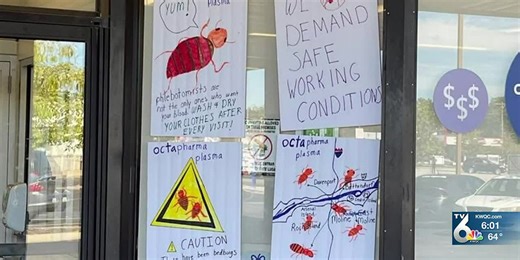 YUM!
plasma
phlebotomists are
not the only ones who want
your blood. WASH & DRY
YOUR CLOTHES AFTER
EVERY VISIT!
WE
DEMAND
SAFE
WORKING
CONDITIONS
$$$
octapharma
plasma
CAUTION
There have been bedbugs
octapharma
plasma
Davenport
Bettendorf
Rock Island
Moline
East
Moline
TV6
KWQC.com
NBC
6:01
64°